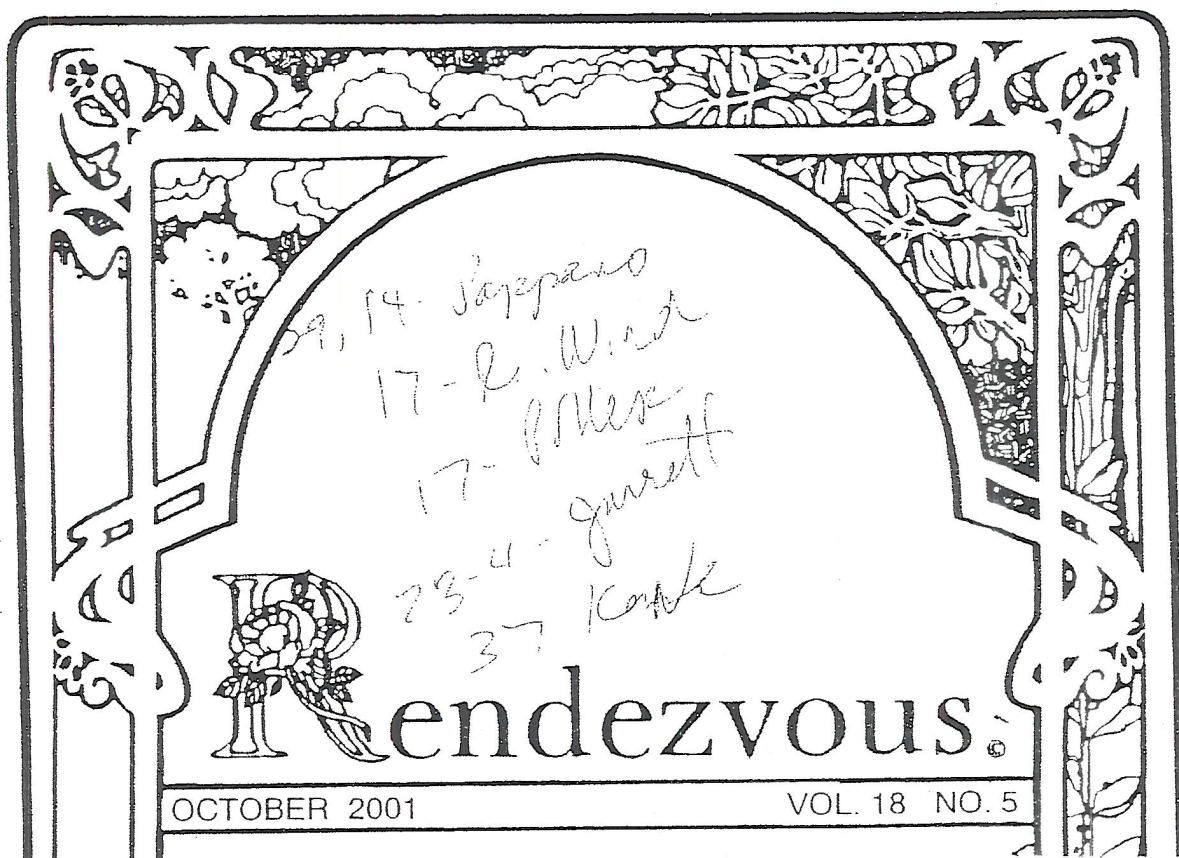 39, 14 - Sappano
17 - R. Wind
17 - Potter
23-4 - Jarrett
37
Rendezvous. ©
OCTOBER 2001 VOL. 18 NO. 5